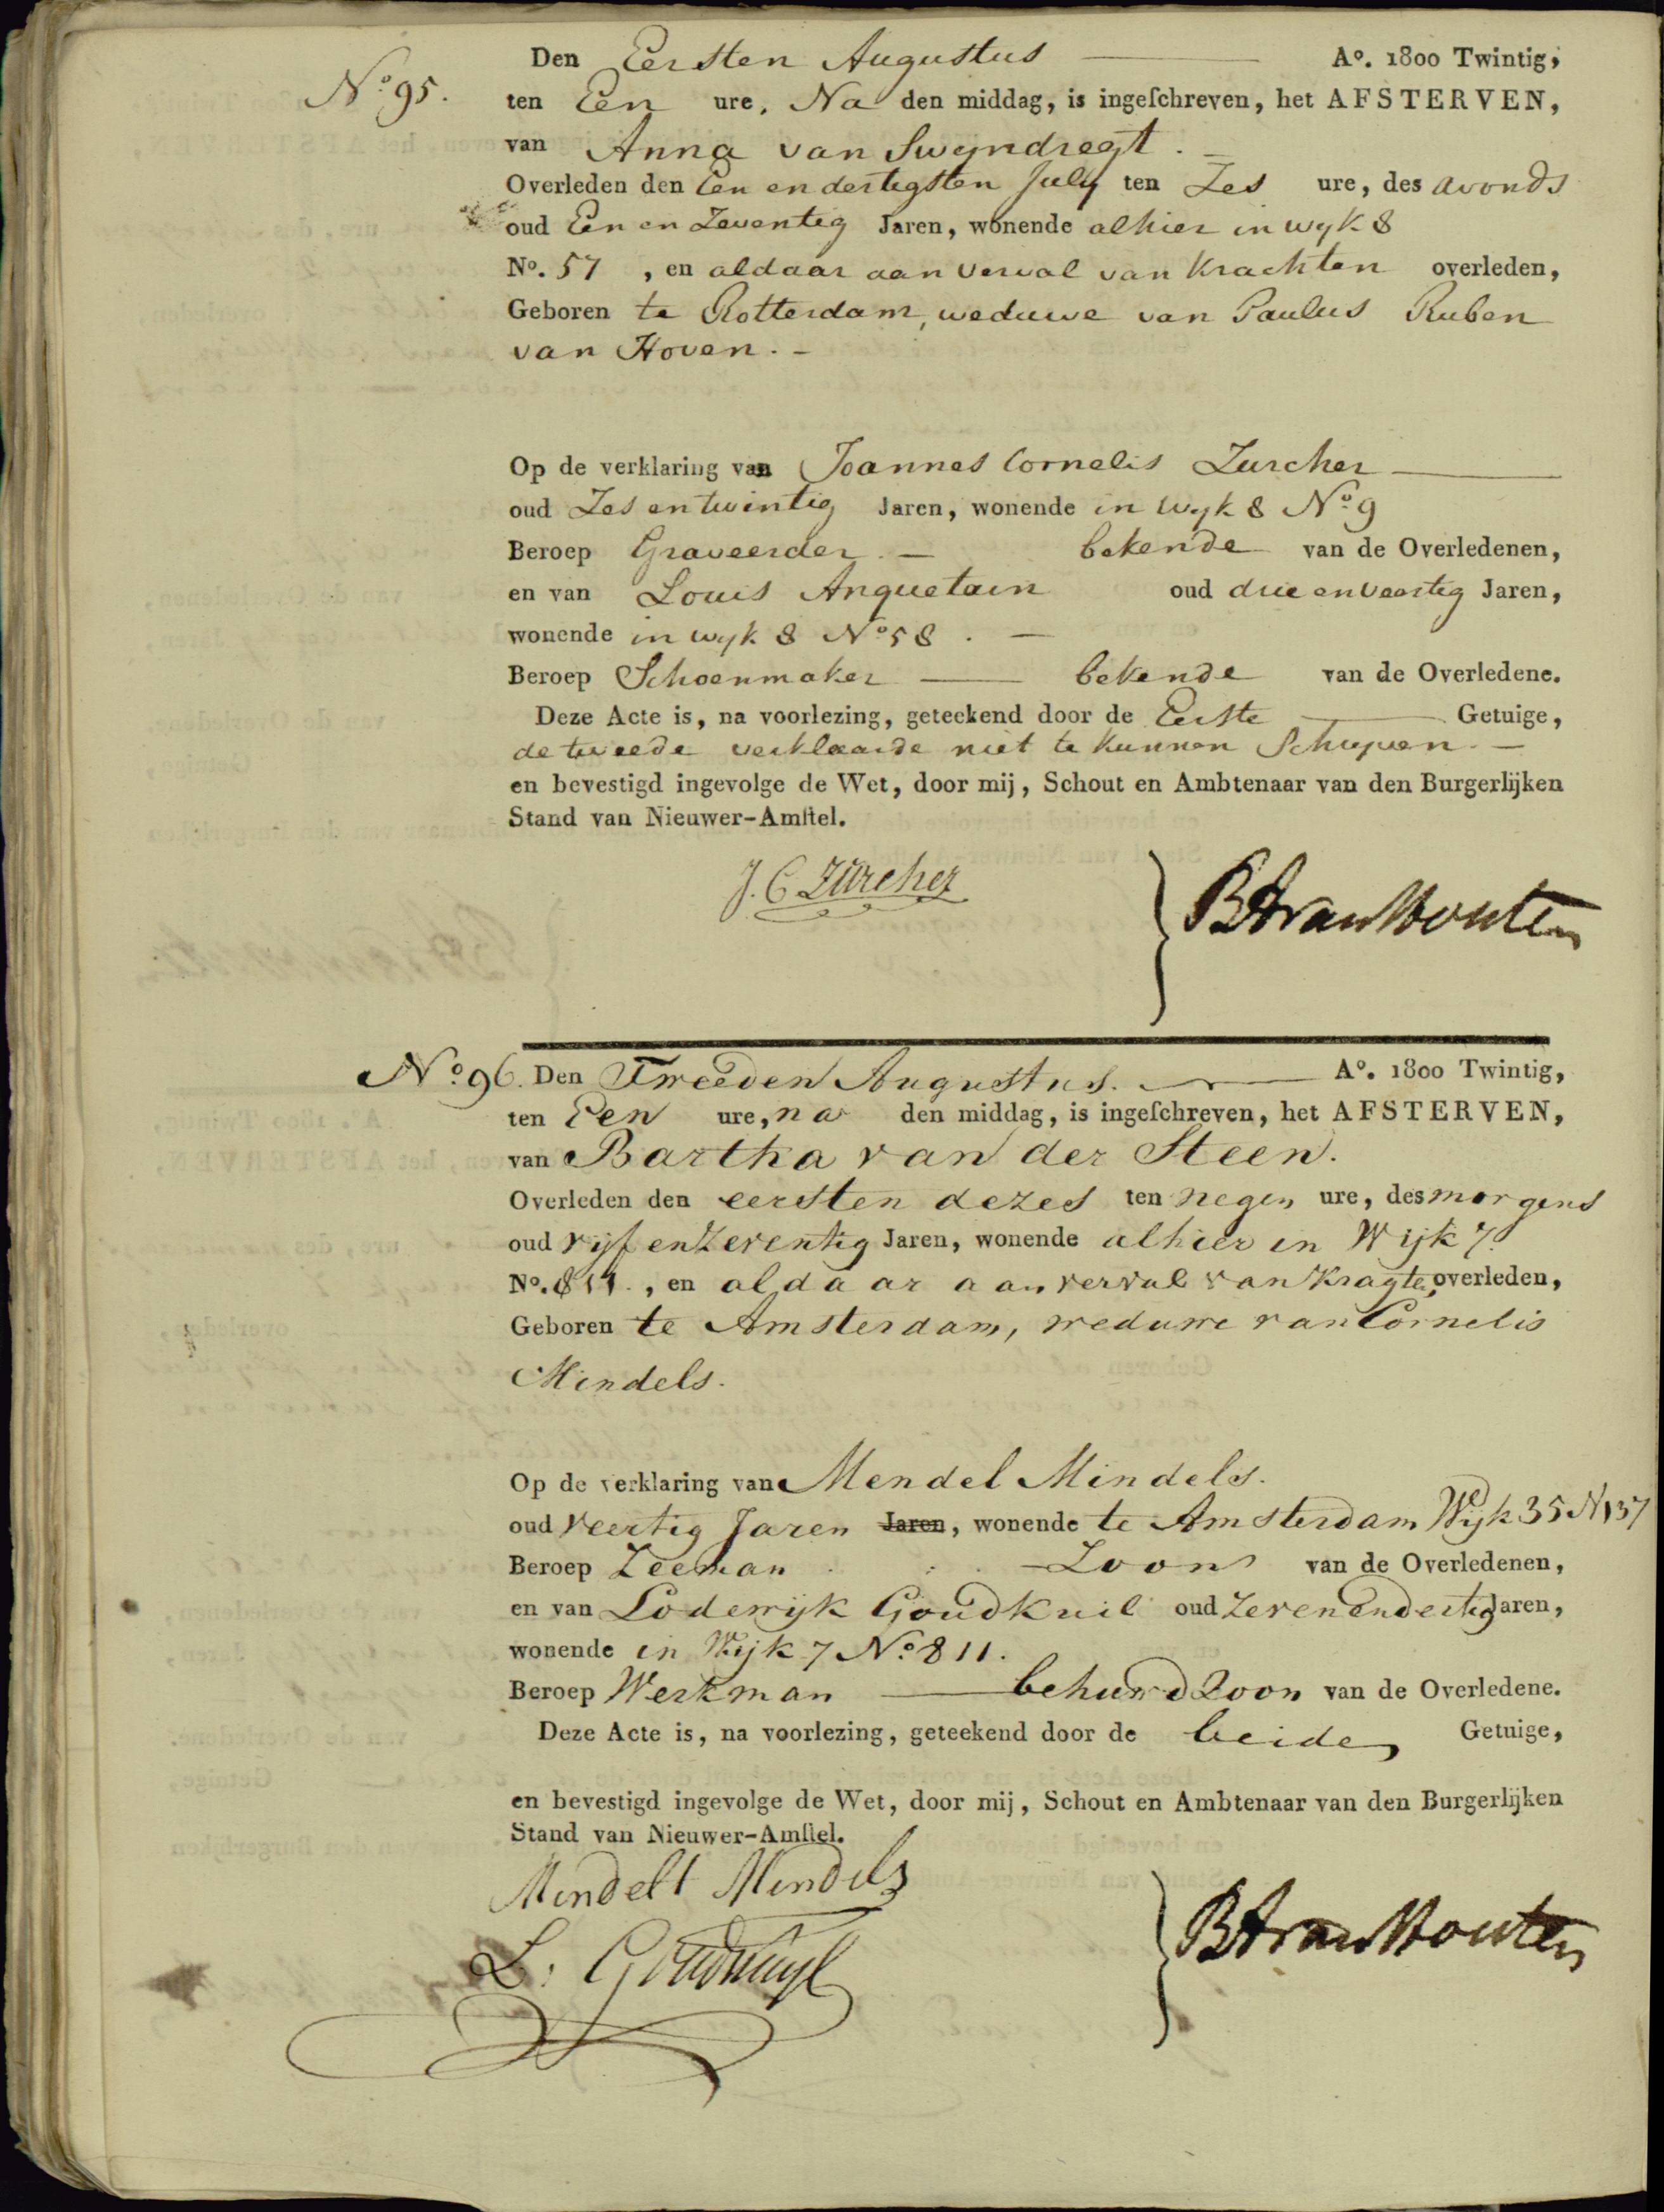 Den Eersten Augustus Aº. 1800 Twintig,
Nº 95. ten Een ure, Na den middag, is ingeſchreven, het AFSTERVEN,
van Anna van Swyndregt.
Overleden den Een en dertigsten July ten Zes ure, des avonds
oud Een en Zeventig Jaren, wonende alhier in wyk 8
Nº. 57, en aldaar aan verval van Krachten overleden,
Geboren te Rotterdam, weduwe van Paulus Ruben
van Hoven.
Op de verklaring van Joannes Cornelis Zurcher
oud Zes en twintig Jaren, wonende in wyk 8 Nº 9
Beroep Graveerder. bekende van de Overledenen,
en van Louis Anquetain oud drie en veertig Jaren,
wonende in wyk 8 Nº 58.
Beroep Schoenmaker bekende van de Overledene.
Deze Acte is, na voorlezing, geteekend door de Eerste Getuige,
de tweede verklaarde niet te kunnen Schryven.
en bevestigd ingevolge de Wet, door mij, Schout en Ambtenaar van den Burgerlijken
Stand van Nieuwer-Amſtel.
J. C. Zürcher
van Houten
Nº 96. Den Tweeden Augustus. Aº. 1800 Twintig,
ten Een ure, na den middag, is ingeſchreven, het AFSTERVEN,
van Bartha van der Steen.
Overleden den eersten dezes ten negen ure, des morgens
oud vijf en Zeventig Jaren, wonende alhier in Wijk 7.
Nº. 811., en aldaar aan verval van Kragten overleden,
Geboren te Amsterdam, weduwe van Cornelis
Mindels.
Op de verklaring van Mendel Mindels.
oud Veertig Jaren Jaren, wonende te Amsterdam Wijk 35 N 137
Beroep Zeeman Zoon van de Overledenen,
en van Lodewijk Goudkuil oud Zeven en dertig Jaren,
wonende in Wijk 7 Nº 811.
Beroep Werkman behuwd Zoon van de Overledene.
Deze Acte is, na voorlezing, geteekend door de beide Getuige,
en bevestigd ingevolge de Wet, door mij, Schout en Ambtenaar van den Burgerlijken
Stand van Nieuwer-Amſtel.
Mindelt Mindels
L. Goudkuyl
van Houten